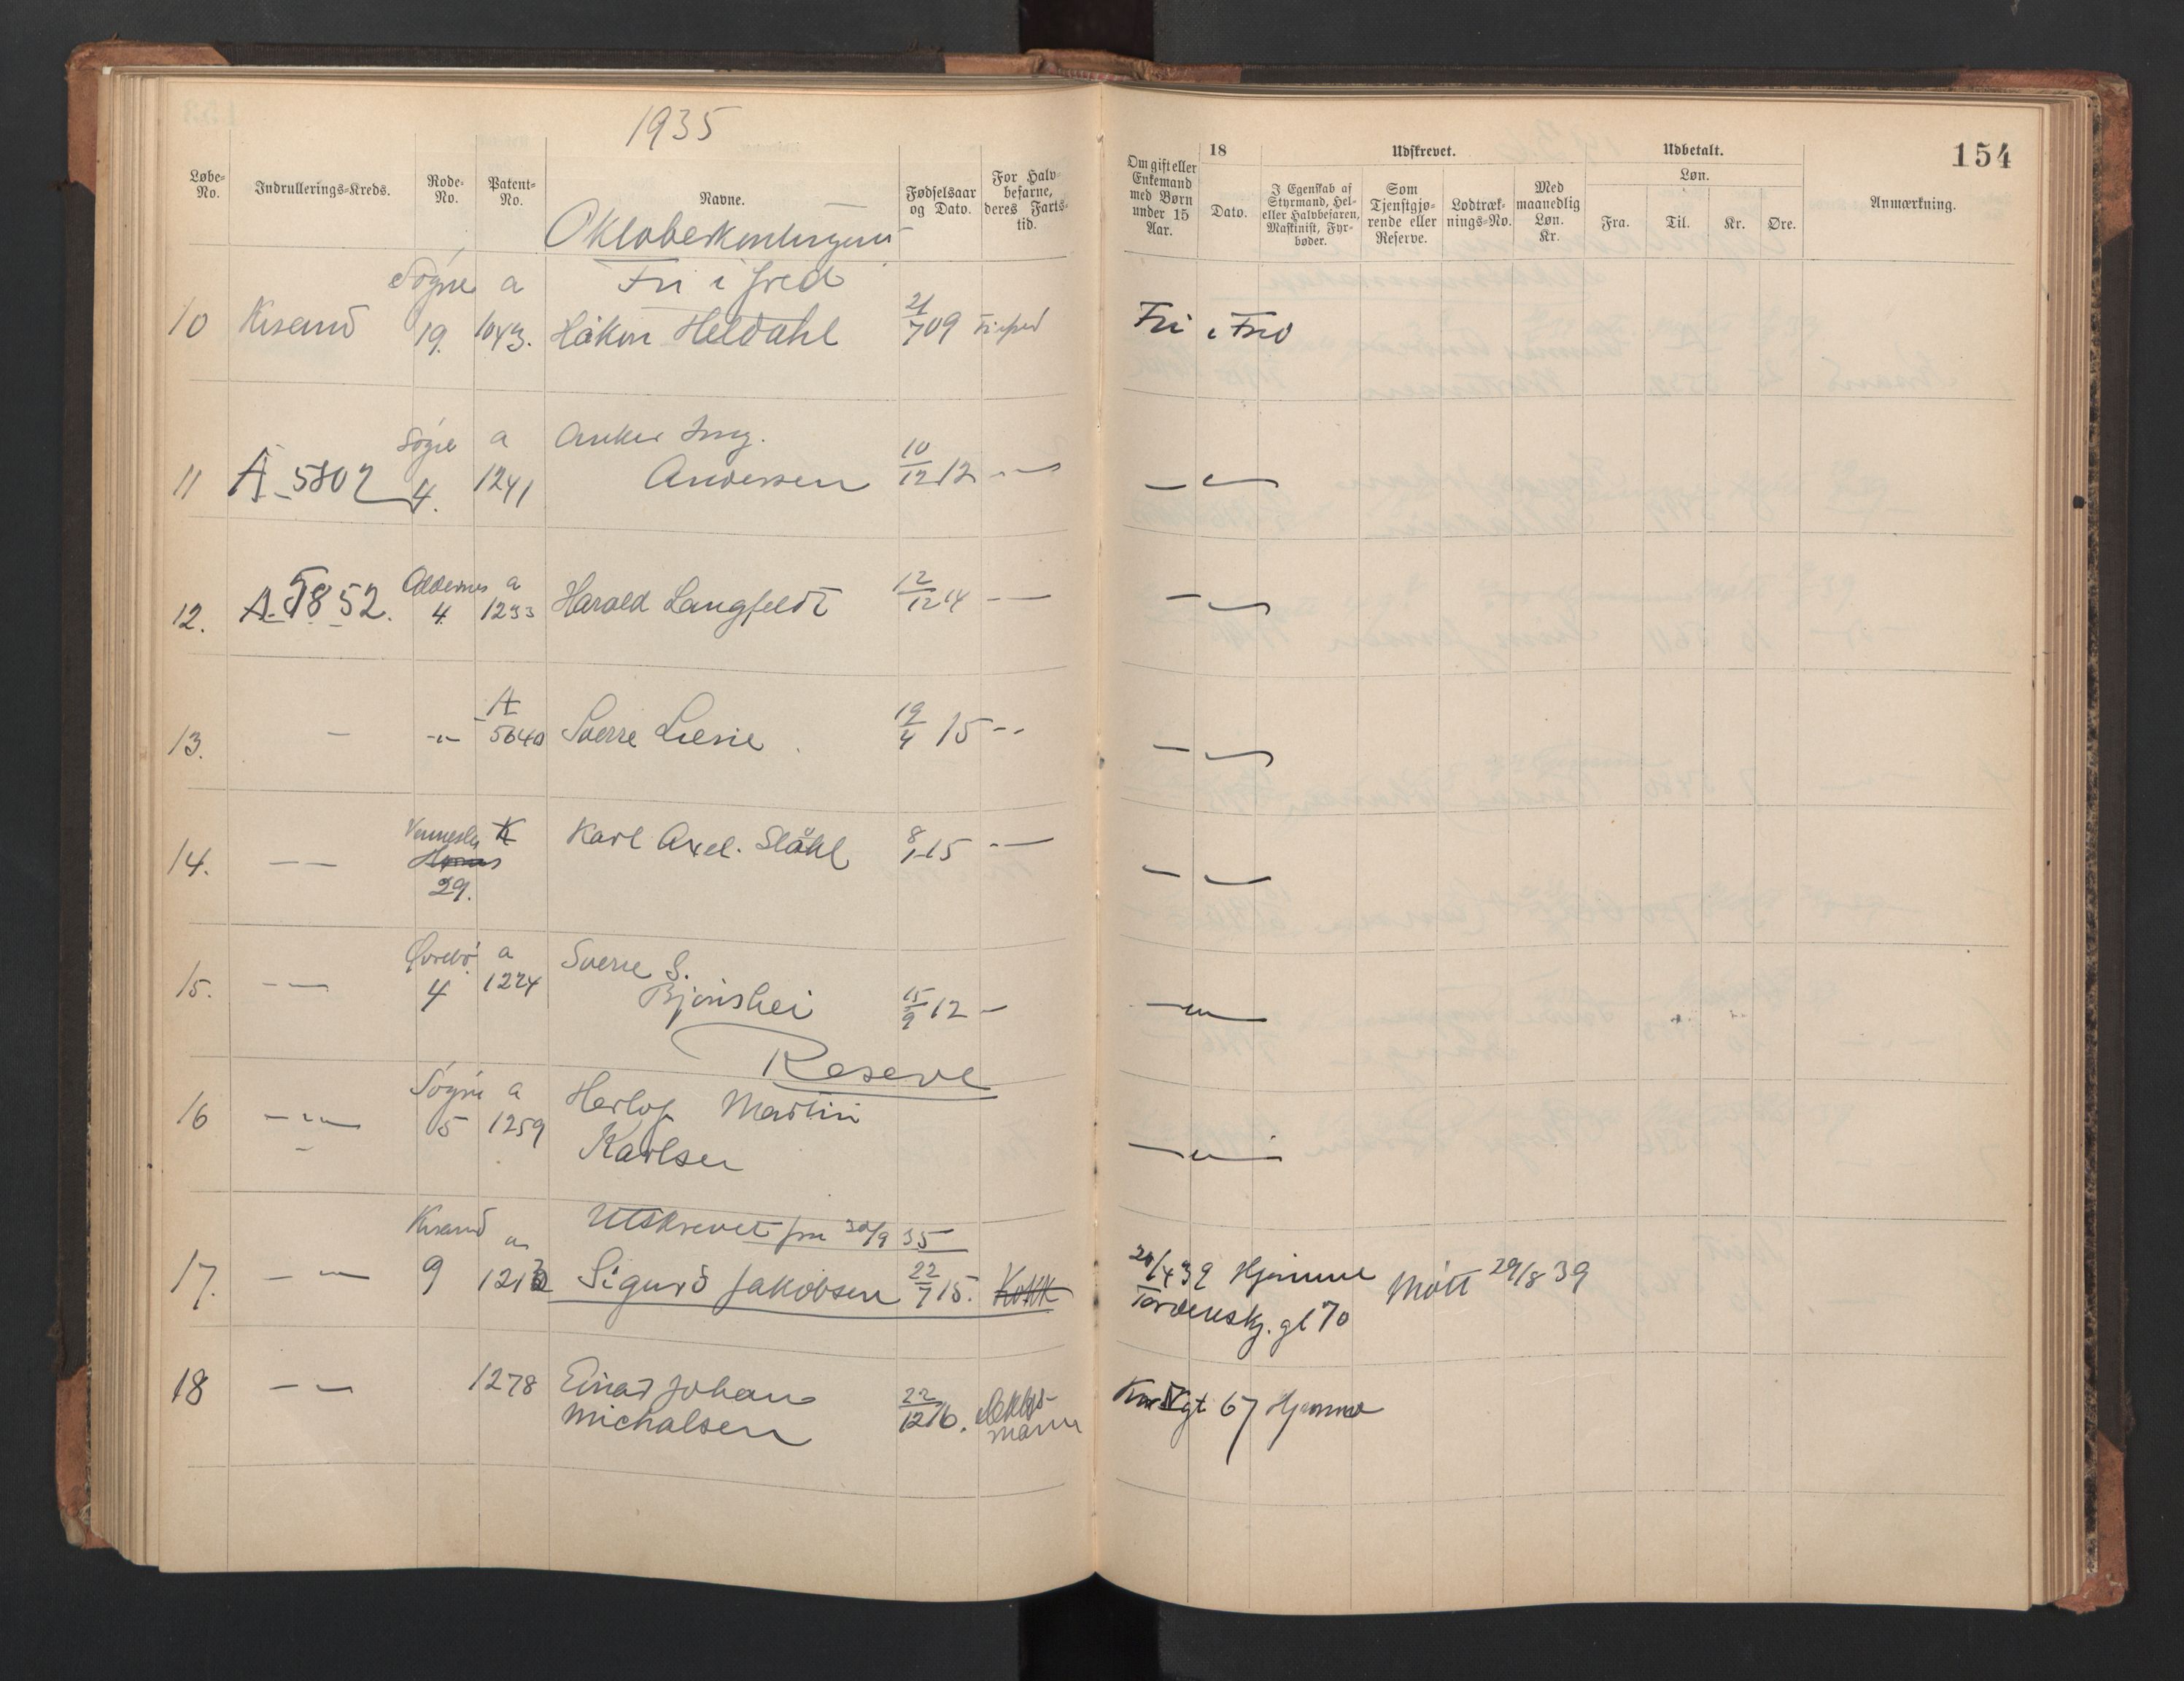 1935
154
Løbe-No.
Indrullerings-Kreds.
Rode-No.
Patent-No.
Navne.
Fødselsaar og Dato.
For Halvbefarne, deres Fartstid.
Om gift eller Enkemand med Børn under 15 Aar.
18
Dato.
Udskrevet.
I Egenskab af Styrmand, Hel- eller Halvbefaren, Maskinist, Fyrbøder.
Som Tjenstgjørende eller Reserve.
Lodtræknings-No.
Med maanedlig Løn. Kr.
Udbetalt.
Løn.
Fra.
Til.
Kr.
Øre.
Anmærkning.
Oktoberkontingent
Søgne a Fri i fred
10 Krsand 19. 1043. Håkon Heldahl 21/7 09 Fri i fred Fri i Fred
Søgne a Anker Ing.
11 A-5802 4. 1241 Andersen 10/12 12 -"- -"-
Oddernes a
12. A.5852. 4. 1233 Harald Langfeldt 12/12 14 -"- -"-
A
13. - -"- 5640 Sverre Liesie 19/4 15 -"- -"-
Vennesla K Karl Axel. Ståhl 8/1 15 -"-
14. -"- -"-
29.
Øvrebø a Sverre S.
15. -"- 4 1224 Bjørishei 15/9 12 - -"-
Reserve
Søgne a Herlof Martin
16 -"- 5 1259 Karlsen -"-
Krsand a Utskrevet fra 30/9 35
17. -"- 9 1213 Sigurd Jakobsen 22/7 15. Kokk 20/4 39 Hjemme Møtt 29/8 39
Tordenskj. gt 70
18 -"- 1278 Einar Johan 22/12 16. Dekksmann gt 67 Hjemme
Michalsen